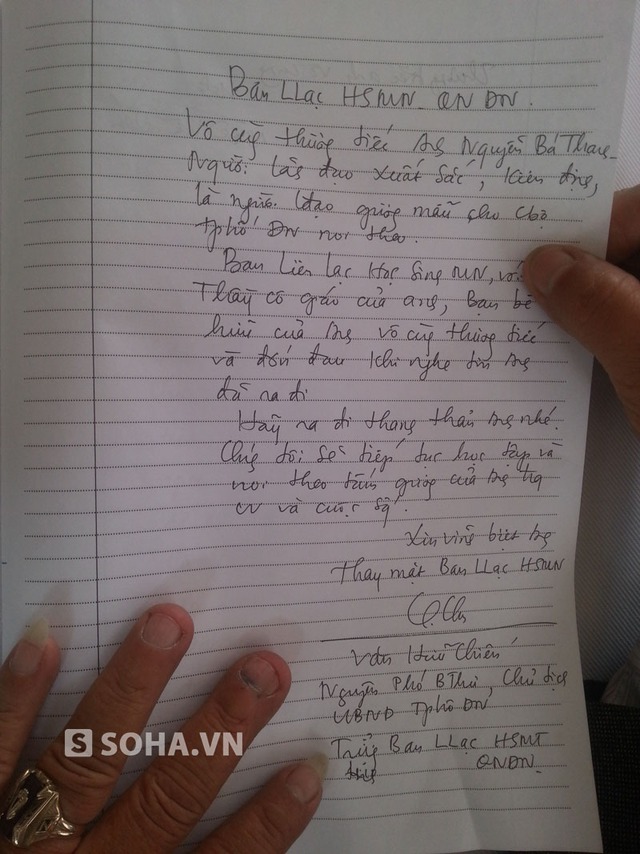 Ban LLạc HSMN - QN ĐN.
Vô cùg thươg tiếc Ag Nguyễn Bá Thah_
Người lãh đạo xuất sắc, kiên địg,
là người lđạo gươg mẫu cho cbộ
Tphố ĐN noi theo.
Ban Liên Lạc Học Sing MN, với
Thầy cô giáo của ang, Bạn bè
hữu của Ag vô cùg thươg tiếc
và đớn đau khi nghe tin Ag
đã ra đi
Hãy ra đi thang thản Ag nhé.
Chúg tôi sẽ tiếp tục học tập và
noi theo tấm gươg của Ag trg
cv và cuộc sốg.
Xin vĩnh biệt Ag
Thay mặt Ban LLạc HSMN
Văn Hữu Chiến
Nguyên Phó BThư, Chủ tịch
UBND Tphố ĐN
Trưởg Ban LLạc HSMT
QNĐN
S SOHA.VN